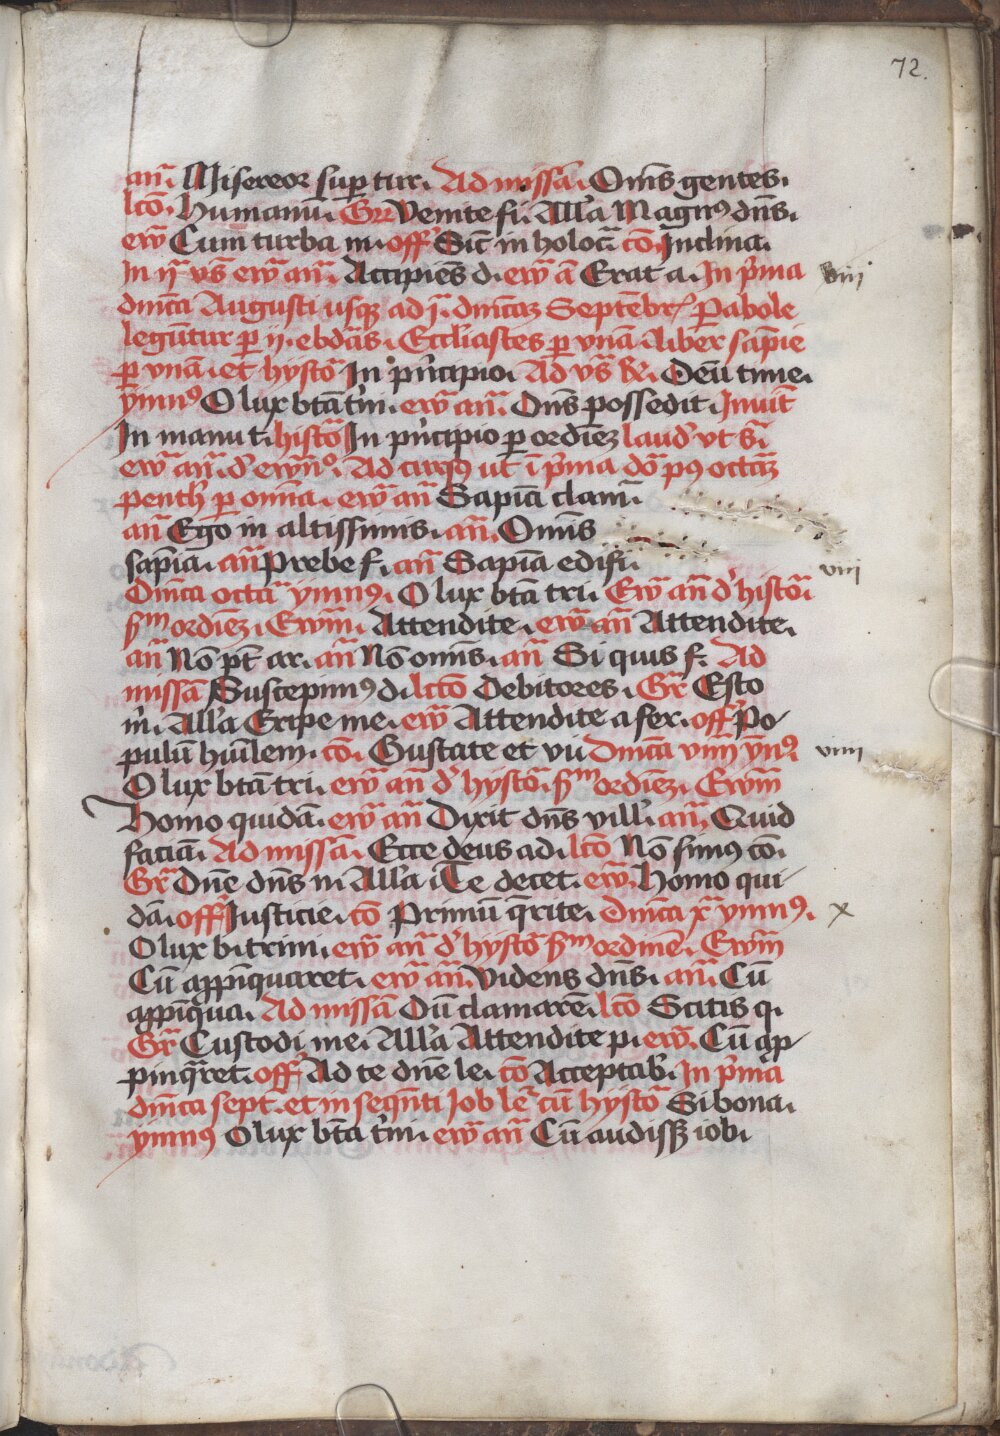 72.
an̄. Misereor sup̄ tur. Ad missā. Om̄s gentes.
lcō. Humanū. Gr̄ Venite fi. All'a Magn⁹ dn̄s.
ew̄ Cum turba m. off̄ Sic̄ in holoc̄. cō. Inclina.
In ij v̄s ew̄ an̄. Accipiēs d. ew̄ ā Erat a. In p̄ma viij
dn̄ica Augusti usqꝫ ad j. dn̄icaꝫ Septēbr̄ P̄abole
legūtur p̄ ij. ebdās. Eccl'iastes p̄ vnā. Liber sap̄ie
p̄ vnā. et hystō In pn̄cipio. Ad v̄s R̄. Deū time.
ymn⁹ O lux btā t'ni. ew̄ an̄. Dn̄s possedit. Inuit̄
In manu t. histō In pn̄cipio p̄ ordiēꝫ laud' vt s̄
ew̄ an̄. d' ewn̄o. Ad cursꝰ ut ī p̄ma dō̄ pꝰ octāꝫ
penth' p̄ omīa. ew̄ an̄ Sapīa clam̄.
an̄ Ego in altissimis. an̄. Om̄is
sap̄ia. an̄ Prebe f. an̄ Sapīa edifi. viij
Dn̄ica octā ymn⁹. O lux btā tri. Ew̄ an̄ d' histō.
s̄m ordiēꝫ. Ewm̄. Attendite. ew̄ an̄ Attendite.
an̄ Nō pt̄ ar. an̄ Nō om̄is. an̄ Si quis f. Ad
missā Suscepim⁹ d. lctō Debitores. Gr̄ Esto
m. All'a Eripe me. ew̄ Attendite a fex. off̄ Po-
pulū hūilem. cō. Gustate et vi. Dn̄ica viiij ym̄⁹. viiij
O lux btā tri. ew̄ an̄ d' hystō. s̄m ordiēꝫ. Ewm̄
Homo quidā. ew̄ an̄ Dixit dn̄s vill'. an̄. Quid
faciā. Ad missā. Ecce deus ad. lcō Nō sim⁹ cō.
Gr̄ Dn̄e dn̄s n. All'a. Te decet. ew̄. Homo qui-
dā. off̄ Iusticie. cō Primū q̄rite. Dn̄ica x̄ ymn⁹. x
O lux b. trini. ew̄ an̄ d' hystō s̄m ordinē. Ewm̄
Cū app̄inquaret. ew̄ an̄. Videns dn̄s. an̄. Cū
app̄inqua. Ad missā Dū clamarē. lcō Scitis q.
Gr̄ Custodi me. All'a Attendite p. ew̄. Cū ap-
pinq̄ret. off̄ Ad te dn̄e le. cō Acceptab'. In p̄ma
dn̄ica sept. et in seqn̄ti Iob le᷑ cū hystō Si bona.
ymn⁹ O lux btā t'ni. ew̄ an̄ Cū audissꝫ iob.